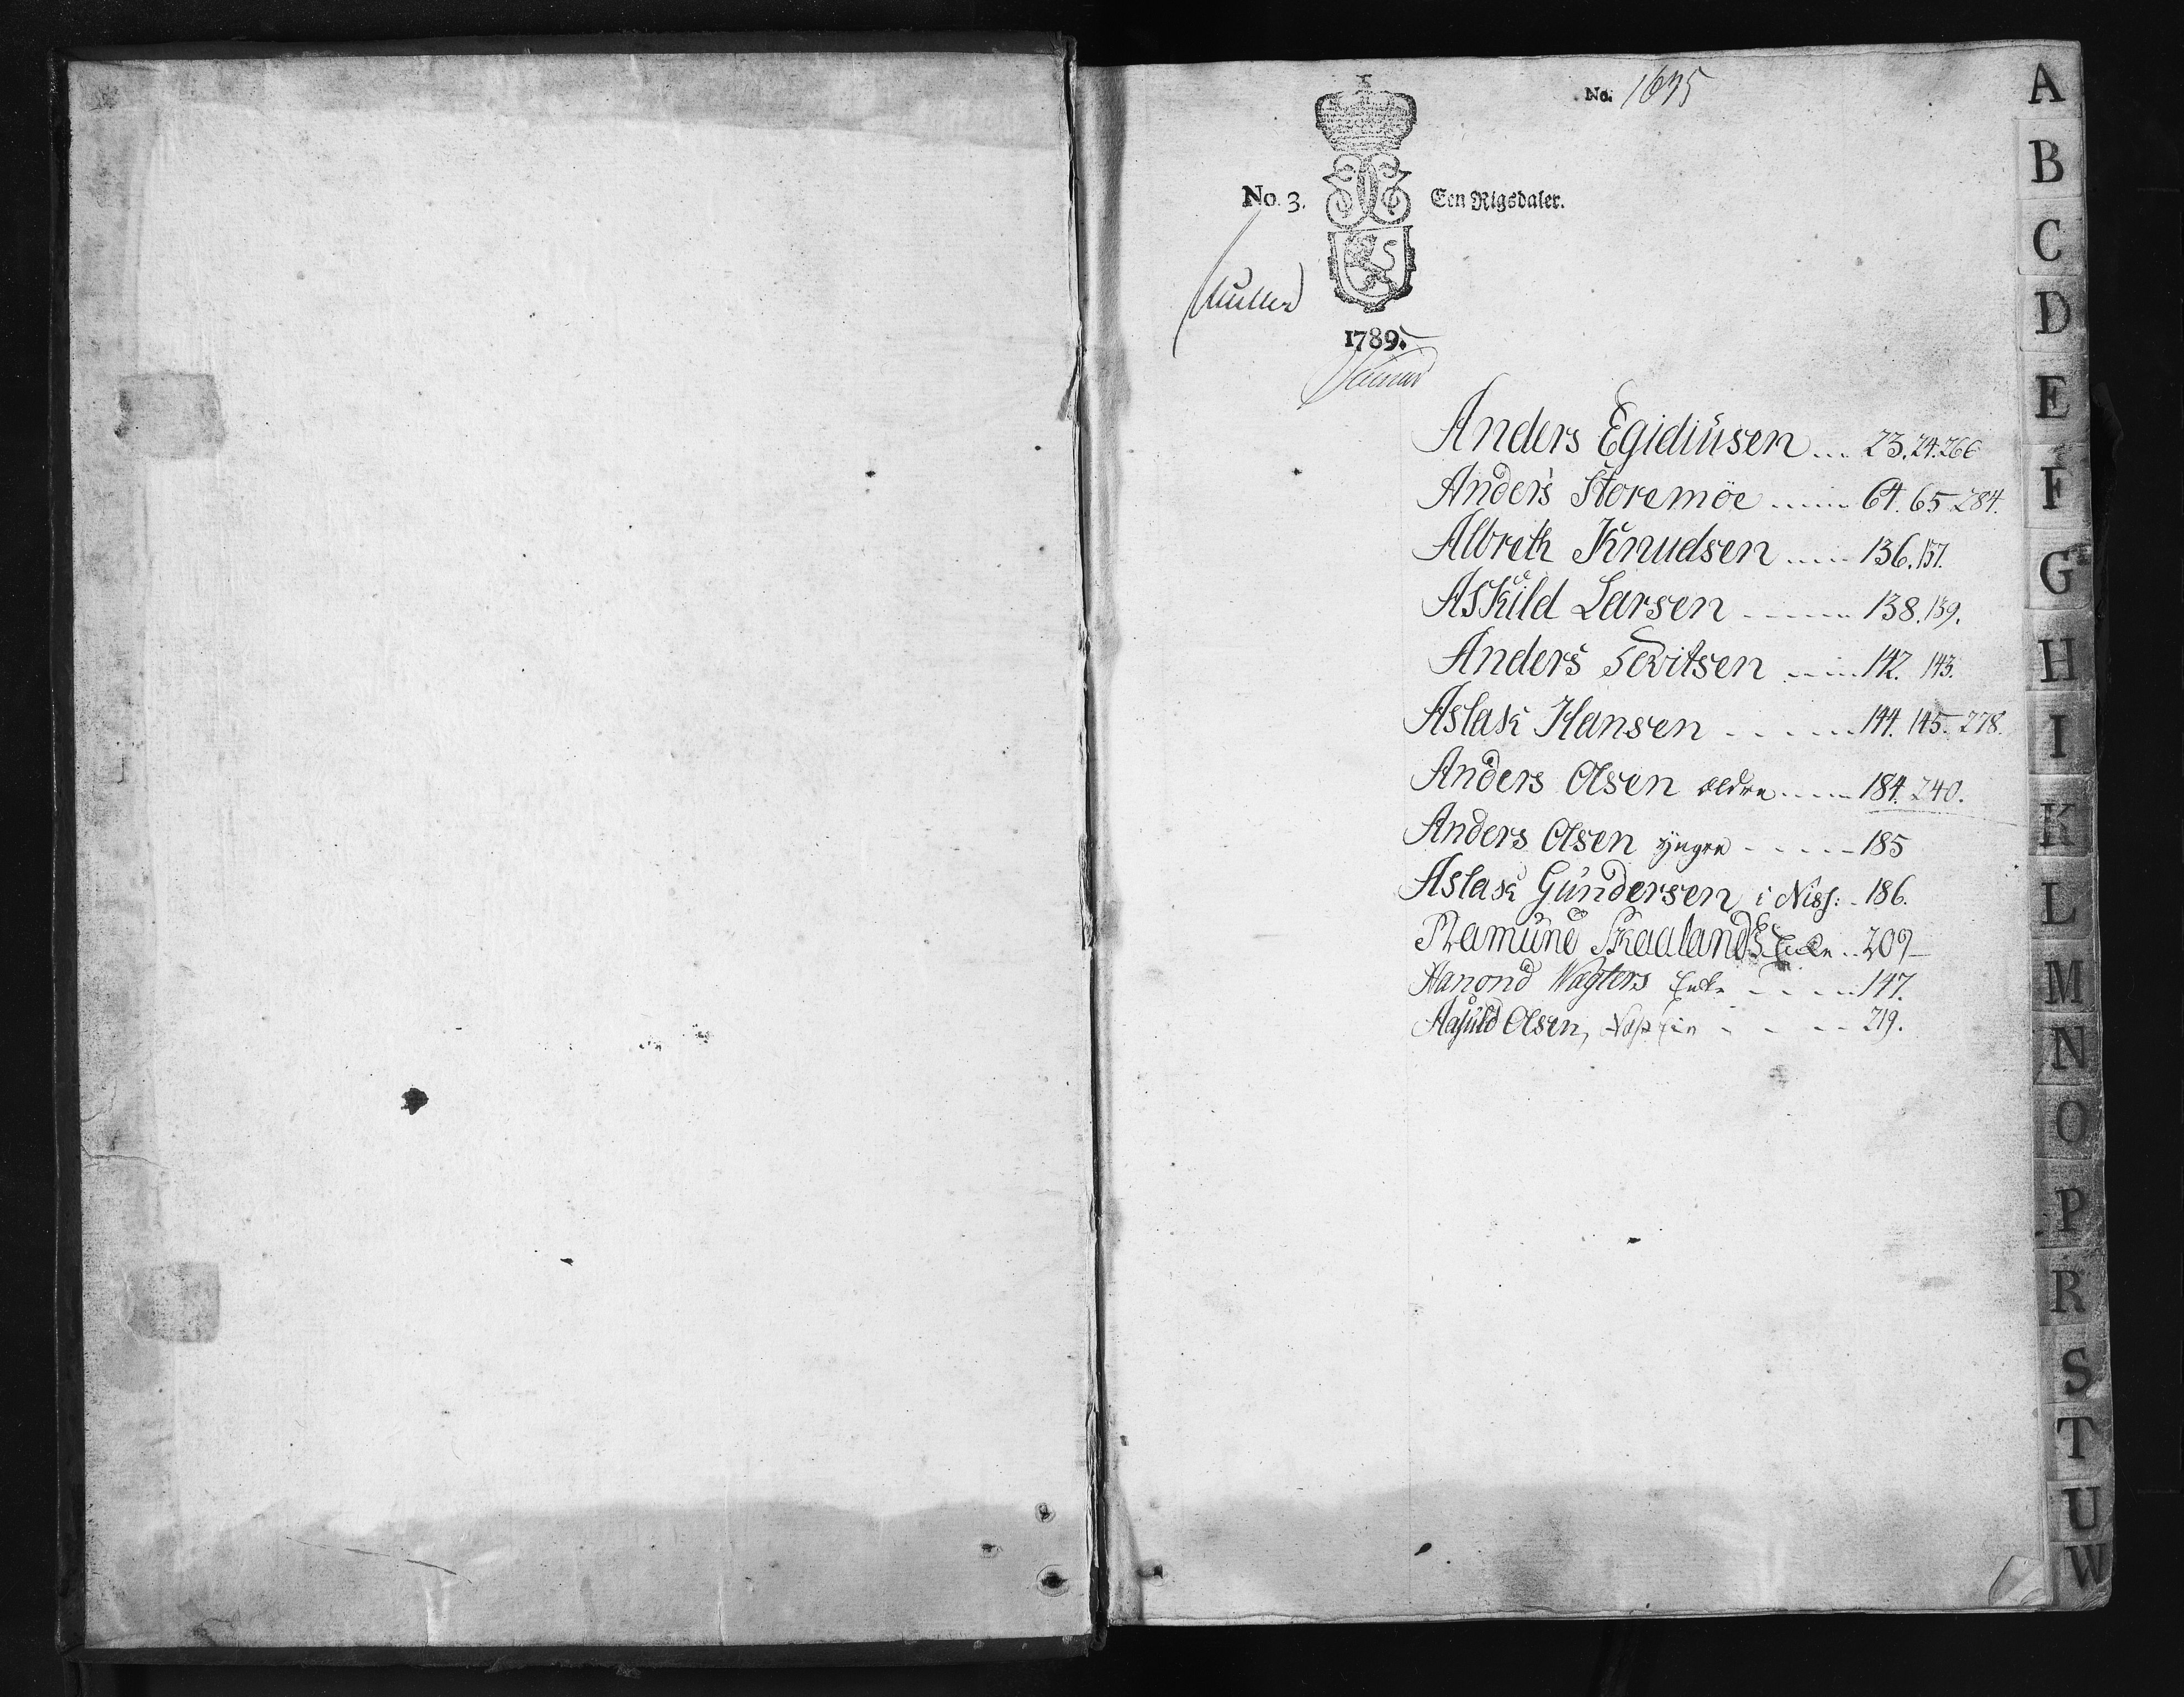 No. 1675
No. 3. Een Rigsdaler.
Müller
1789.
Anders Egidiüsen ... 23. 24. 266
Anders Storemöe ..... 64. 65. 284.
Albreth Knudsen ..... 136. 137.
Askild Larsen ------ 138. 139.
Anders Tovitsen ..... 142. 143.
Aslak Hansen - - - ... 144. 145. 278.
Anders Olsen ældre ..... 184. 240.
Anders Olsen yngre - - - - - 185
Aslak Gündersen i Niss: - 186.
Skaalands Enke .. 209 -
Aanond Wagters Enke - - - ... 147.
Olsen, - - - - 219.
A
B
C
D
E
F
G
H
I
K
L
M
N
O
P
R
S
T
U
W